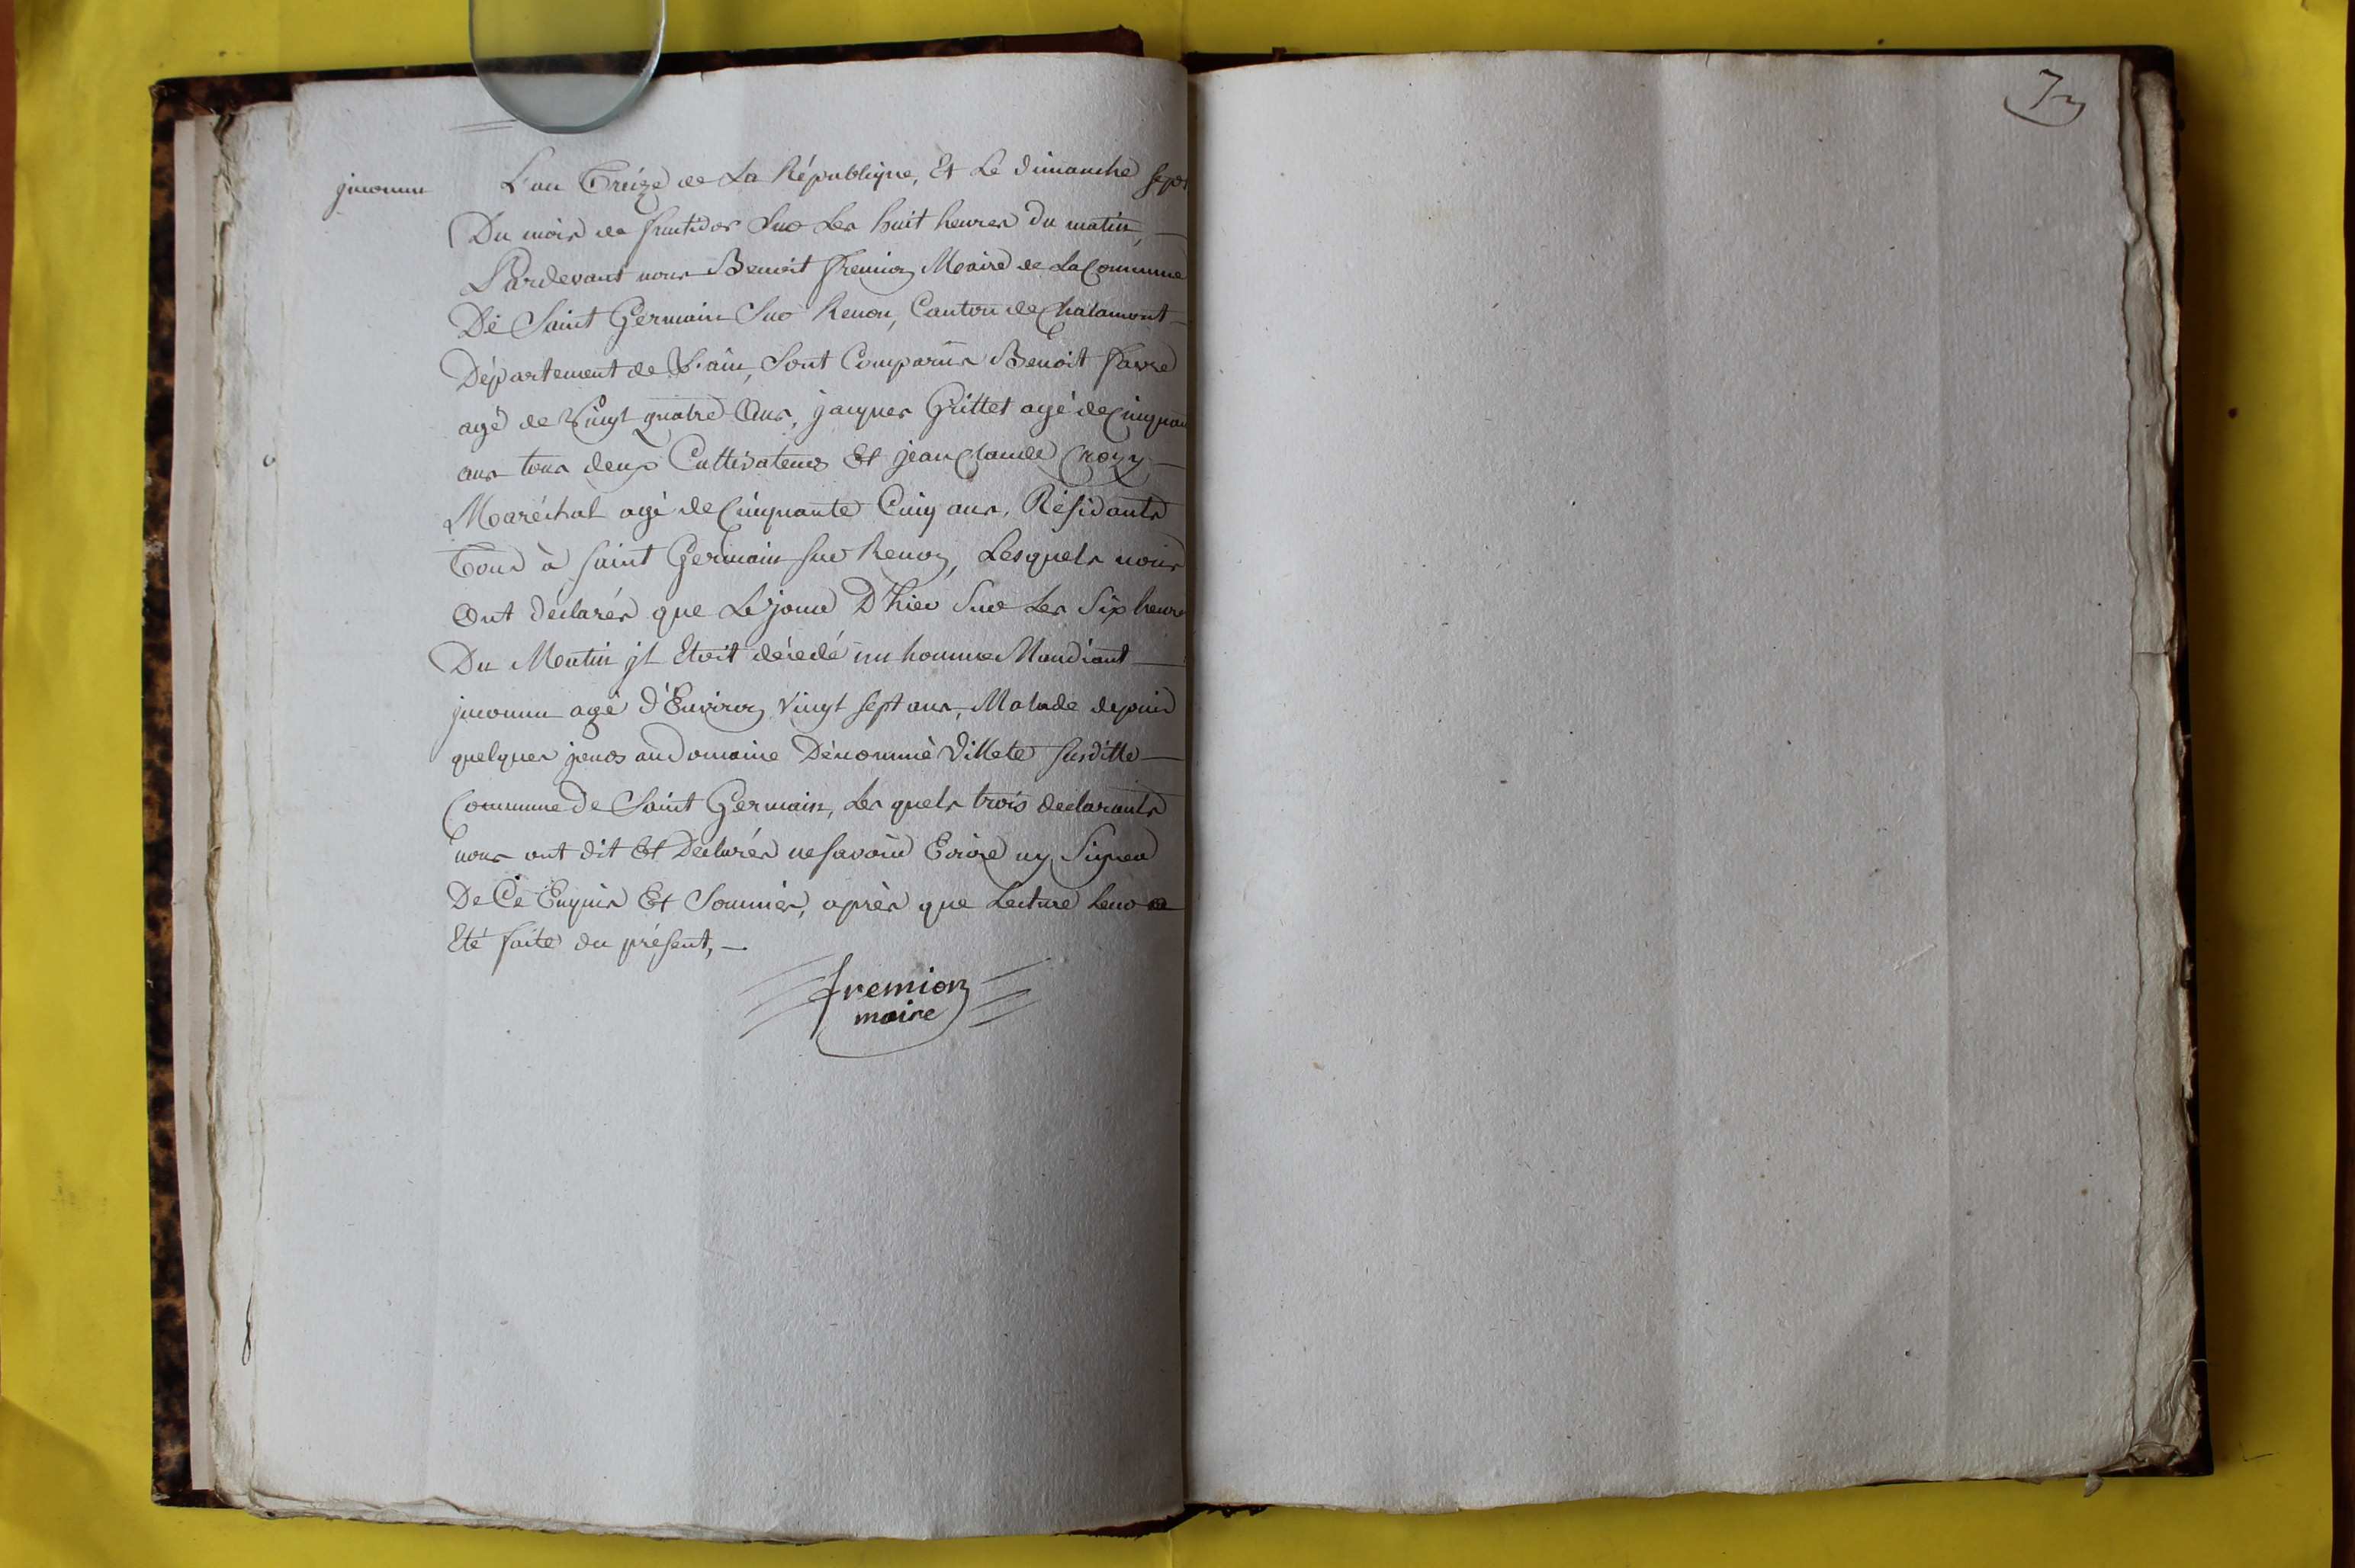 jnconnu
L'an Treize de La République, Et Le dimanche sept
Du mois de fructidor Sur Les huit heures du matin,
Pardevant nous Benoit fremion Maire de La Commune
De Saint Germain Sur Renon, Canton de Chalamont
Département de L'ain, Sont Comparûs Benoit favre
agé de Vingt quatre Ans, jacques Grittet agé de Cinquante
ans tous deux Cultivateurs Et jean Claude
Maréchal agé de Cinquante Cinq ans, Résidants
Tous à Saint Germain sur Renon, Lesquels nous
Ont déclarés que Le jour D'hier Sur Les Six heures
Du Matin jl Etoit décedé un homme Mandiant
jnconnu agé d'Environ Vingt sept ans, Malade depuis
quelques jours au Domaine Dénommé Villete susditte
Commune de Saint Germain, Les quels trois declarants
nous ont dit Et Declarés ne savoir Ecrire ny Signer
De Ce Enquis Et Sommés, après que Lecture Leur a
Eté faite du présent,
fremion
maire
7